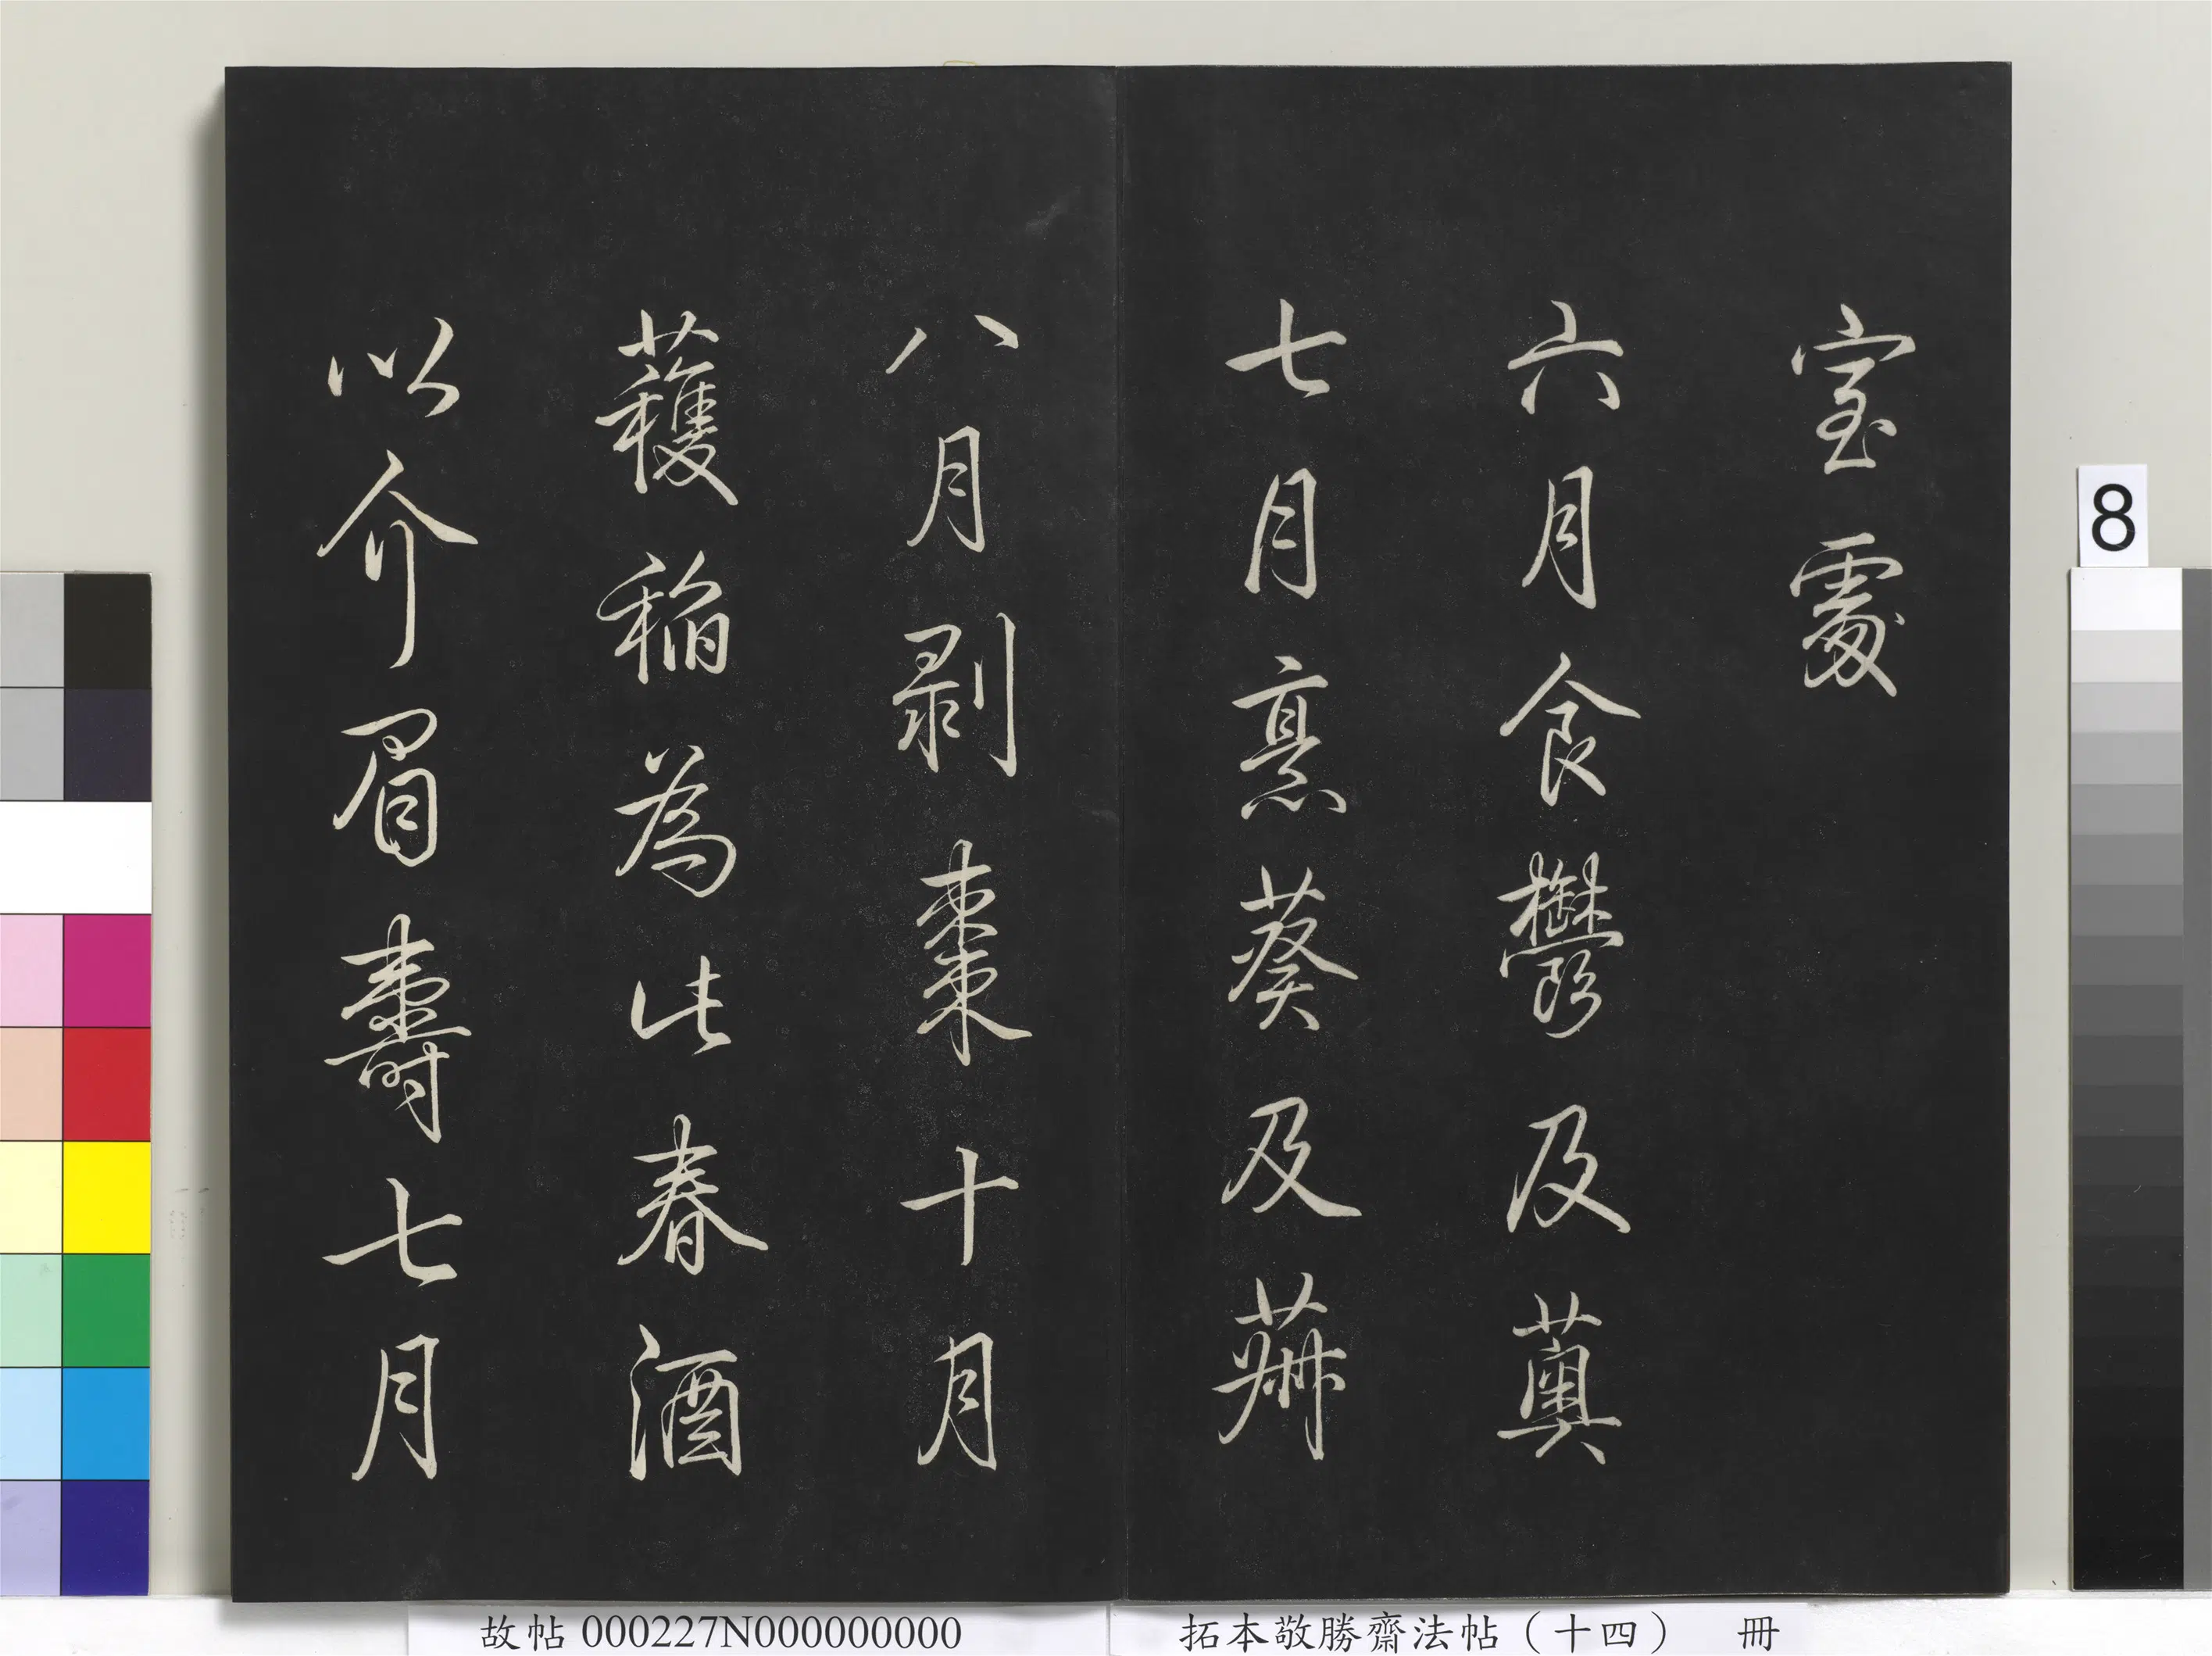 室處
六月食鬱及薁
七月烹葵及菽
八月剥棗十月
穫稻為此春酒
以介眉壽七月
8
故帖 000227N000000000
拓本敬勝齋法帖（十四） 冊